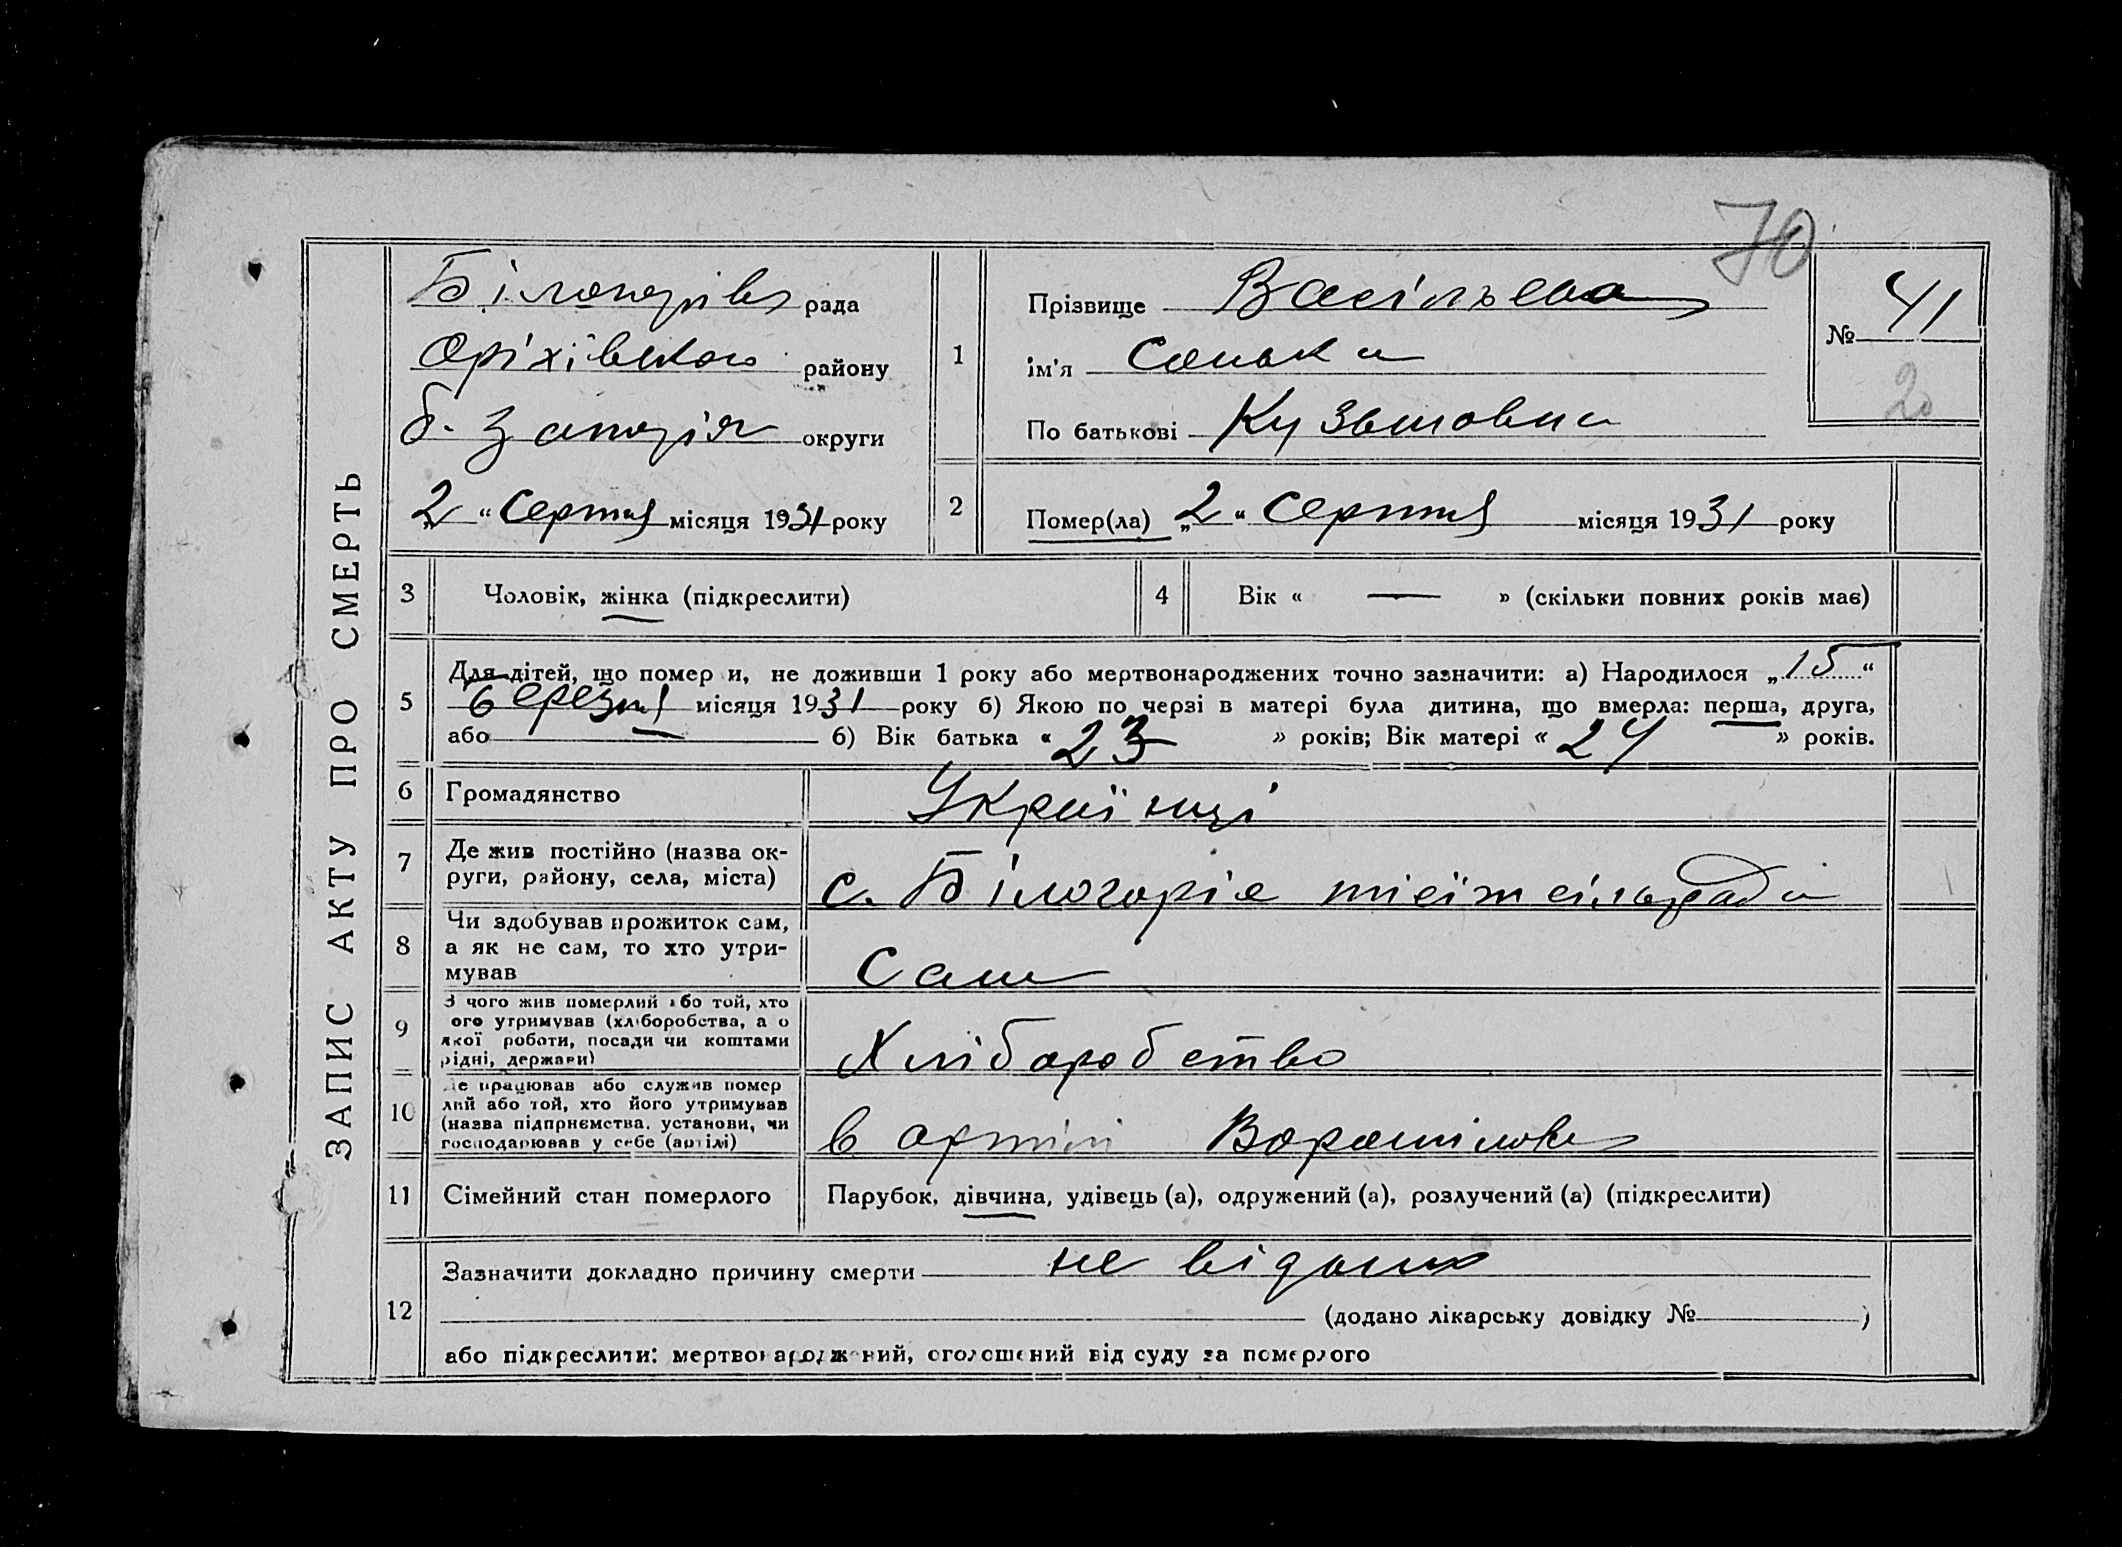 70
ЗАПИС АКТУ ПРО СМЕРТЬ
Білогорів рада
Оріхівського району
б. Запоріж округи
„2“ Серпня місяця 1931 року
1
Прізвище Васільєва
ім'я Сонька
По батькові Кузьмовна
№ 41
20
2
Помер(ла) „2“ Серпня місяця 1931 року
3 Чоловік, жінка (підкреслити)
4 Вік « — » (скільки повних років має)
5
Для дітей, що помер и, не доживши 1 року або мертвонароджених точно зазначити: а) Народилося „15“
березня місяця 1931 року б) Якою по черзі в матері була дитина, що вмерла: перша, друга,
або — б) Вік батька « 23 » років; Вік матері « 24 » років.
6 Громадянство Українці
7 Де жив постійно (назва ок-
руги, району, села, міста) с. Білогоріє тієїж сільради
8 Чи здобував прожиток сам,
а як не сам, то хто утри-
мував Сам
9 З чого жив померлий або той, хто
ого утримував (хліборобства, а о
якої роботи, посади чи коштами
рідні, держави) Хліборобство
10 Де працював або служив помер
лий або той, хто його утримував
(назва підприємства, установи, чи
господарював у себе (артілі) в артілі Ворошилова
11 Сімейний стан померлого Парубок, дівчина, удівець (а), одружений (а), розлучений (а) (підкреслити)
12
Зазначити докладно причину смерти не відомо
(додано лікарську довідку № )
або підкреслити: мертвонароджений, оголошений від суду за померлого